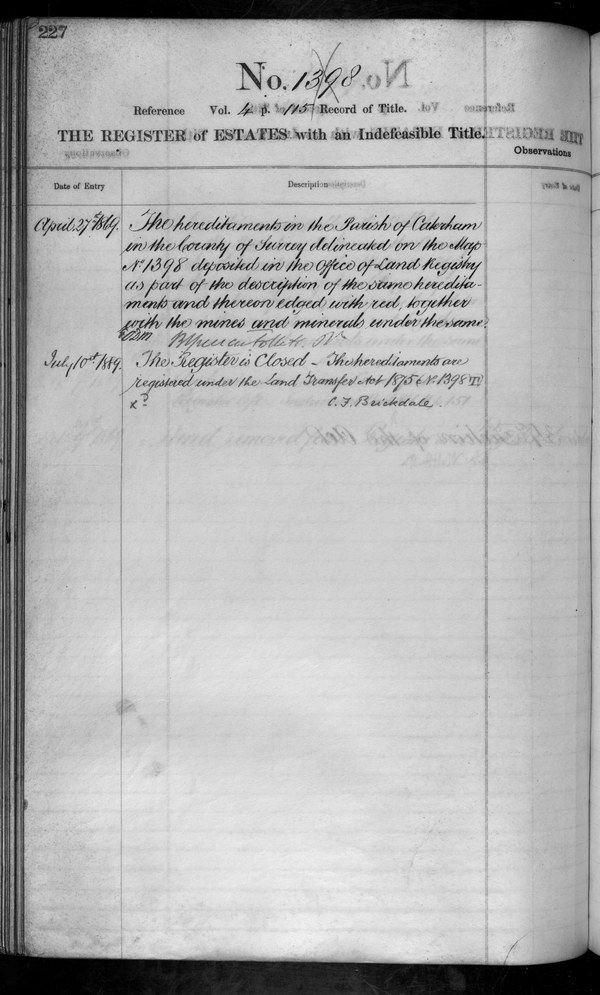 227
No. 1398
Reference Vol. 4 p. 115 Record of Title.
THE REGISTER of ESTATES with an Indefeasible Title.
Observations
Date of Entry
Description
April 27th 1869. The hereditaments in the Parish of Caterham
in the County of Surrey delineated on the Map
No 1398 deposited in the Office of Land Registry
as part of the description of the same heredita-
ments and thereon edged with red, together
with the mines and minerals under the same.
Follett
July 10th 1889. The Register is Closed – The hereditaments are
registered under the Land Transfer Act 1875 No 1398
C. F. Brickdale.